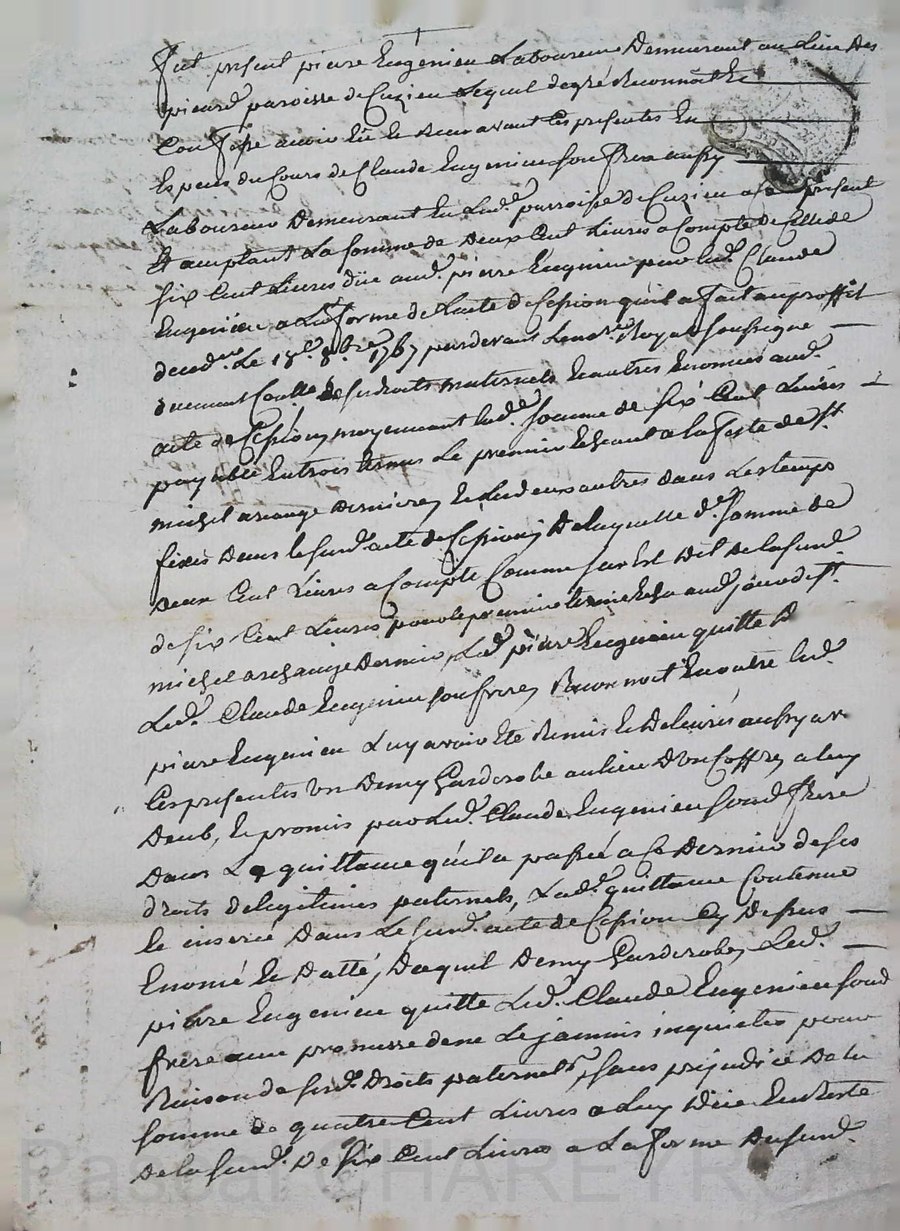 Fut présent pierre Eugenieu Laboureur Demeurant au Lieu Des
picard paroisse de Cuzieu Lequel de gré Reconnoit Et
Confesse avoir Eü Et Receu avant Ces presentes En
Espece du Cours de Claude Eugenieu son frere aussy
Laboureur Demeurant En Lad.e parroisse de Cuzieu a Ce present
Et acceptant La somme de Deux Cent Livres a Compte de Celle de
six Cent Livres düe aud. pierre Eugenieu par led. Claude
Eugenieu a La forme de L'acte de Cession qu'il a fait au proffit
de ced.er Le 18.e 8bre 1767 pardevant Le no.re Royal soussigné
duement Collé De ses droits maternels Et autres Enoncés aud.
acte de Cession moyennant lad.e somme de six Cent Livres
payable En trois termes Le premier Echeant a la feste de S.t
michel arcange Derniere, Et Les deux autres dans Les temps
fixés Dans le susd. acte de Cession, De laquelle d.e somme de
Deux Cent Livres a Compte Comme sus Est Dit De la susd.
de six Cent Livres pour le premier terme Echu aud. jour de S.t
michel archange Dernier, Led. pierre Eugenieu quitte
Led. Claude Eugenieu son frere, Reconnoit En outre led.
pierre Eugenieu Luy avoir Eté Remis Et Delivré aussy av.
Ces presentes Un Demy Garderobe au lieu D'un Coffre, a luy
Deub, Et promis par Led. Claude Eugenieu sond. frere
Dans La quittance qu'il a passée a Ce Dernier de ses
droits de legitimes paternels, Lad.e quittance Contenue
Et inserée Dans Le susd. acte de Cession Cy Dessus
Enoncé Et Datté, Duquel Demy Garderobe, Led.
pierre Eugenieu quitte Led. Claude Eugenieu sond
frere avec promesse de ne Le jamais inquieter pour
Raison de sesd. Droits paternels, sans prejudice De la
somme de quatre Cent Livres a Luy Düe En Reste
De la susd. De six Cent Livres a La forme Du susd.
Pascal CHAREYRON